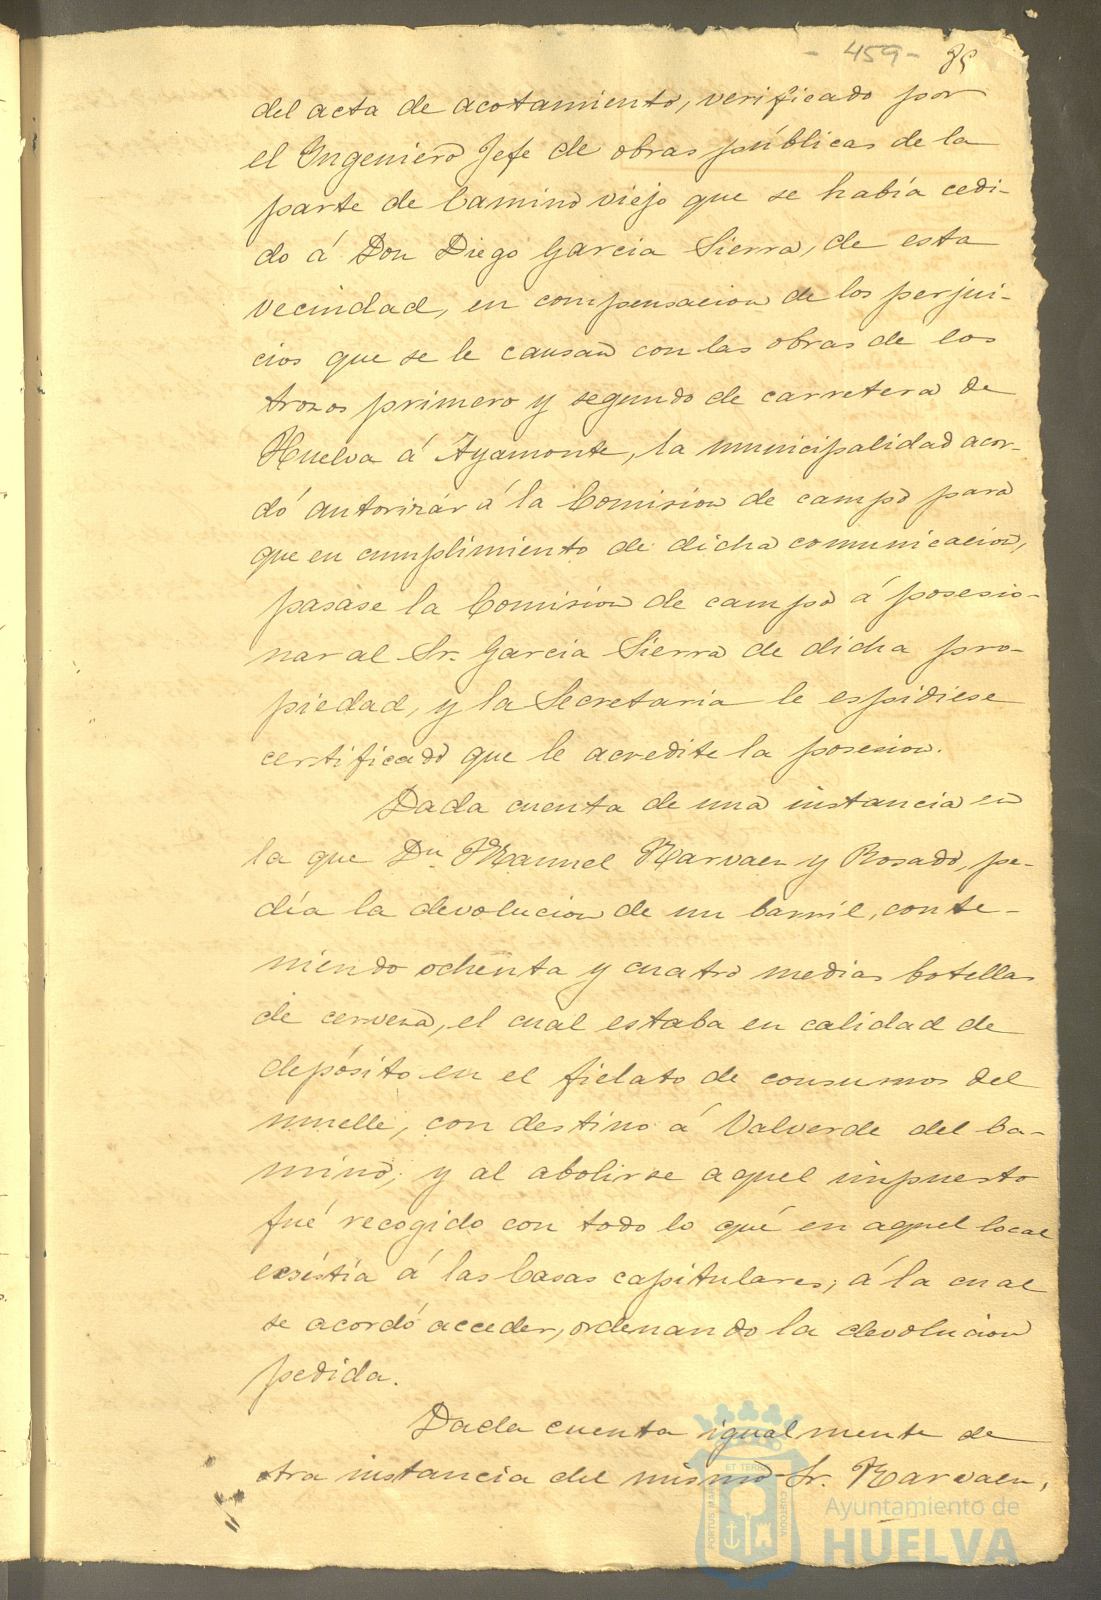 - 459 - 35
del acta de acotamiento, verificado por
el Yngeniero Jefe de obras públicas de la
parte de Camino viejo que se había cedi-
do á Don Diego Garcia Sierra, de esta
vecindad, en compensacion de los perjui-
cios que se le causan con las obras de los
trozos primero y segundo de carretera de
Huelva á Ayamonte, la municipalidad acor-
dó autorizár á la Comision de campo para
que en cumplimiento de dicha comunicacion,
pasase la Comision de campo á posesio-
nar al Sr. Garcia Sierra de dicha pro-
piedad, y la Secretaria le espidiese
certificado que le acredite la posesion.
Dada cuenta de una instancia en
la que Dn Manuel Narvaez y Rosado, pe-
día la devolucion de un barril, conte-
niendo ochenta y cuatro medias botellas
de cerveza, el cual estaba en calidad de
depósito en el fielato de consumos del
muelle, con destino á Valverde del Ca-
mino, y al abolirse aquel impuesto
fué recogido con todo lo qué en aquel local
ecsistía á las Casas capitulares; á la cual
se acordó acceder, ordenando la devolucion
pedida.
Dada cuenta igualmente de
otra instancia del mismo Sr. Narvaez,
PORTUS MARIS ET TERRAE CUSTODIA
Ayuntamiento de
HUELVA